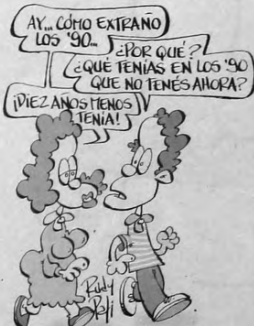 AY... CÓMO EXTRAÑO
LOS '90...
¿POR QUÉ?
¿QUÉ TENÍAS EN LOS '90
QUE NO TENÉS AHORA?
¡DIEZ AÑOS MENOS
TENÍA!
Rudy
Pati